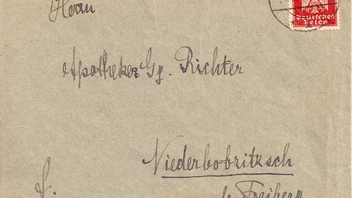 Herrn
Deutsches
Reich
Apotheker Gg. Richter
Niederbobritzsch
b. Freiberg